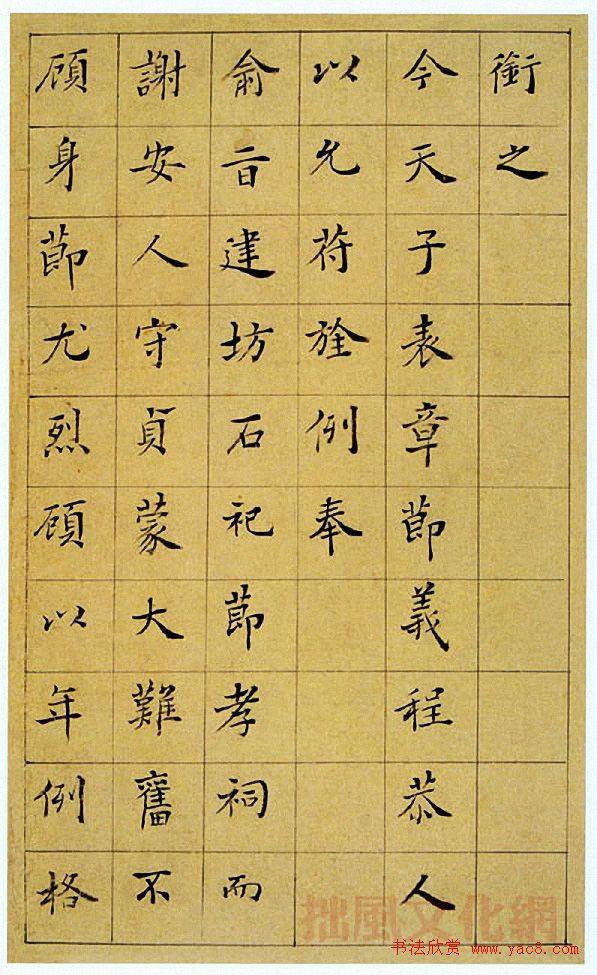 銜之
今天子表章節義程恭人
以允符旌例奉
俞旨建坊石祀節孝祠而
謝安人守貞蒙大難奮不
顧身節尤烈顧以年例格
拙風文化網
书法欣赏 www.yac8.com